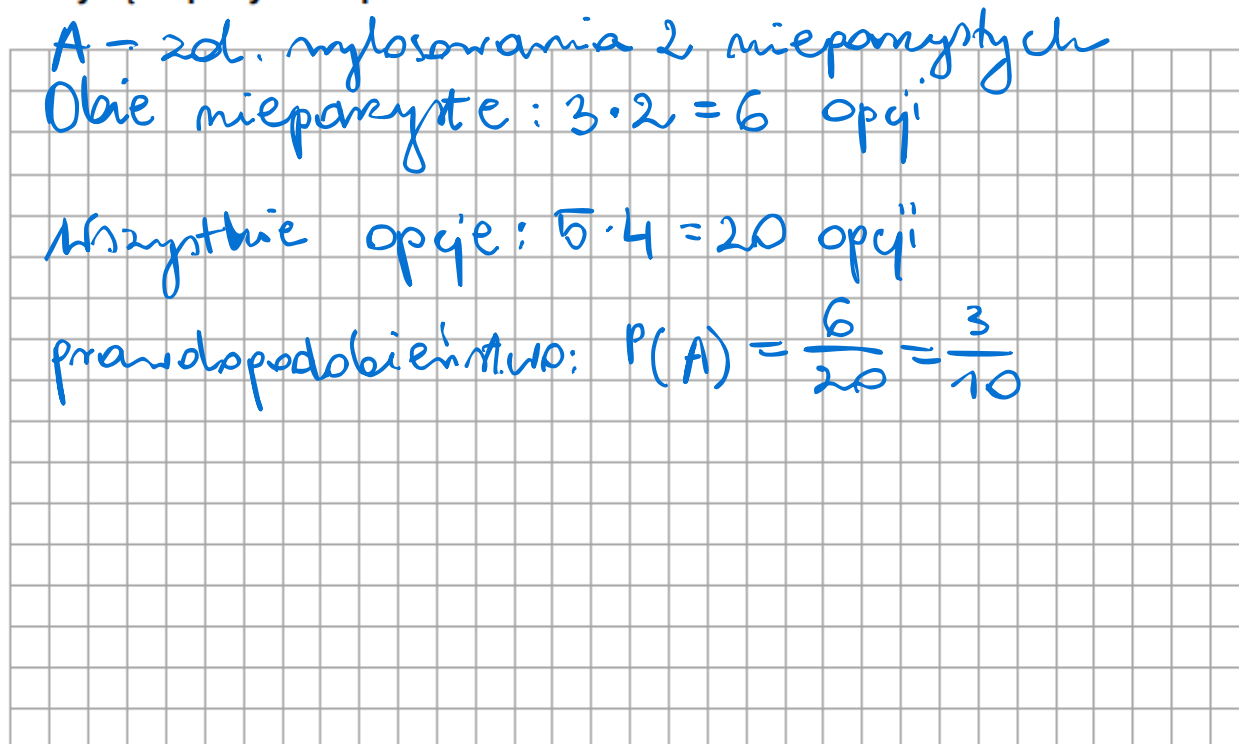 A - zd. wylosowania 2 nieparzystych
Obie nieparzyste : 3·2 = 6 opcji
Wszystkie opcje : 5·4 = 20 opcji
prawdopodobieństwo: P(A) = 6/20 = 3/10